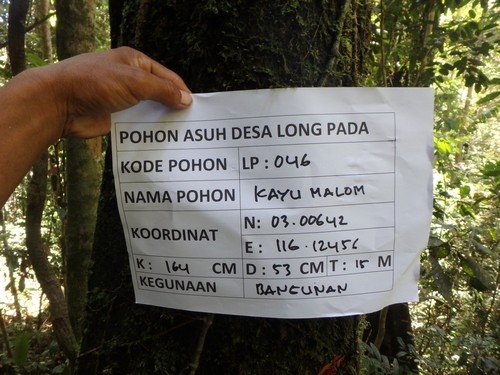 POHON ASUH DESA LONG PADA
KODE POHON LP : 046
NAMA POHON KAYU MALOM
KOORDINAT N: 03.00642
E : 116.12456
K : 164 CM D : 53 CM T : 15 M
KEGUNAAN BANGUNAN